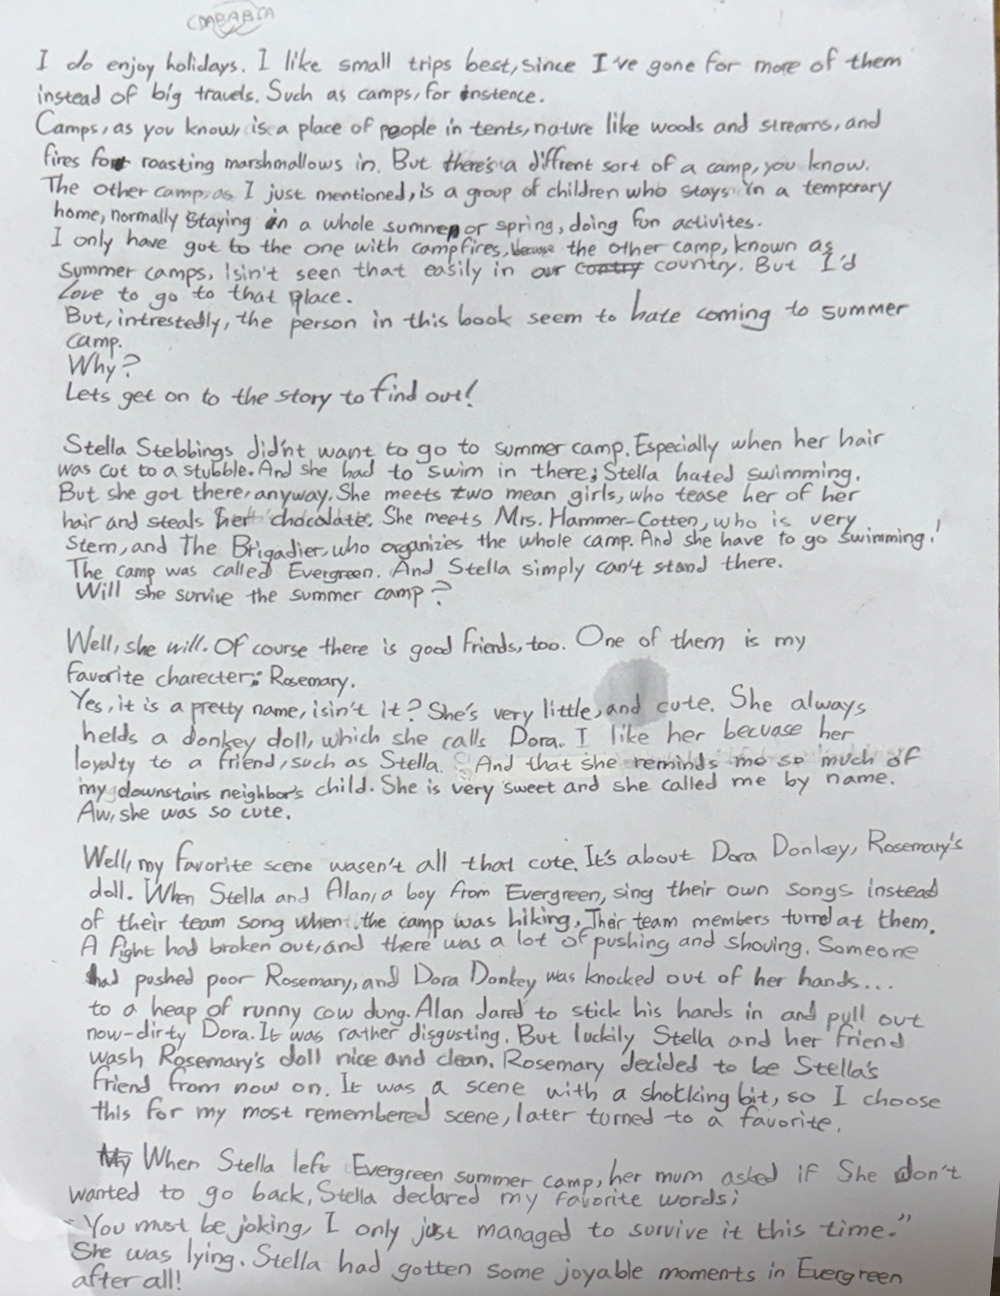 I do enjoy holidays. I like small trips best, since I've gone for more of them
instead of big travels. Such as camps, for instence.
Camps, as you know, is a place of people in tents, nature like woods and streams, and
fires for roasting marshmallows in. But there's a diffrent sort of a camp, you know.
The other camp, as I just mentioned, is a group of children who stays in a temporary
home, normally staying in a whole summer or spring, doing fun activites.
I only have got to the one with campfires, becuase the other camp, known as
Summer camps, isin't seen that easily in our contry country. But I'd
Love to go to that place.
But, intrestedly, the person in this book seem to hate coming to summer
camp.
Why?
Lets get on to the story to find out!
Stella Stebbings did'nt want to go to summer camp. Especially when her hair
was cut to a stubble. And she had to swim in there; Stella hated swimming.
But she got there, anyway. She meets two mean girls, who tease her of her
hair and steals her chocolate. She meets Mrs. Hammer-Cotten, who is very
Stern, and The Brigadier, who organizes the whole camp. And she have to go swimming!
The camp was called Evergreen. And Stella simply can't stand there.
Will she survive the summer camp?
Well, she will. Of course there is good friends, too. One of them is my
favorite charecter; Rosemary.
Yes, it is a pretty name, isin't it? She's very little, and cute. She always
helds a donkey doll, which she calls Dora. I like her becuase her
loyalty to a friend, such as Stella. And that she reminds me so much of
my downstairs neighbor's child. She is very sweet and she called me by name.
Aw, she was so cute.
Well, my favorite scene wasen't all that cute. It's about Dora Donkey, Rosemary's
doll. When Stella and Alan, a boy from Evergreen, sing their own songs instead
of their team song when the camp was hiking, Their team members turned at them.
A fight had broken out, and there was a lot of pushing and shoving. Someone
had pushed poor Rosemary, and Dora Donkey was knocked out of her hands...
to a heap of runny cow dung. Alan dared to stick his hands in and pull out
now-dirty Dora. It was rather disgusting. But luckily Stella and her friend
wash Rosemary's doll nice and clean. Rosemary decided to be Stella's
friend from now on. It was a scene with a shotking bit, so I choose
this for my most remembered scene, later turned to a favorite.
My When Stella left Evergreen summer camp, her mum asked if She don't
wanted to go back, Stella declared my favorite words;
"You must be joking, I only just managed to survive it this time."
She was lying. Stella had gotten some joyable moments in Evergreen
after all!